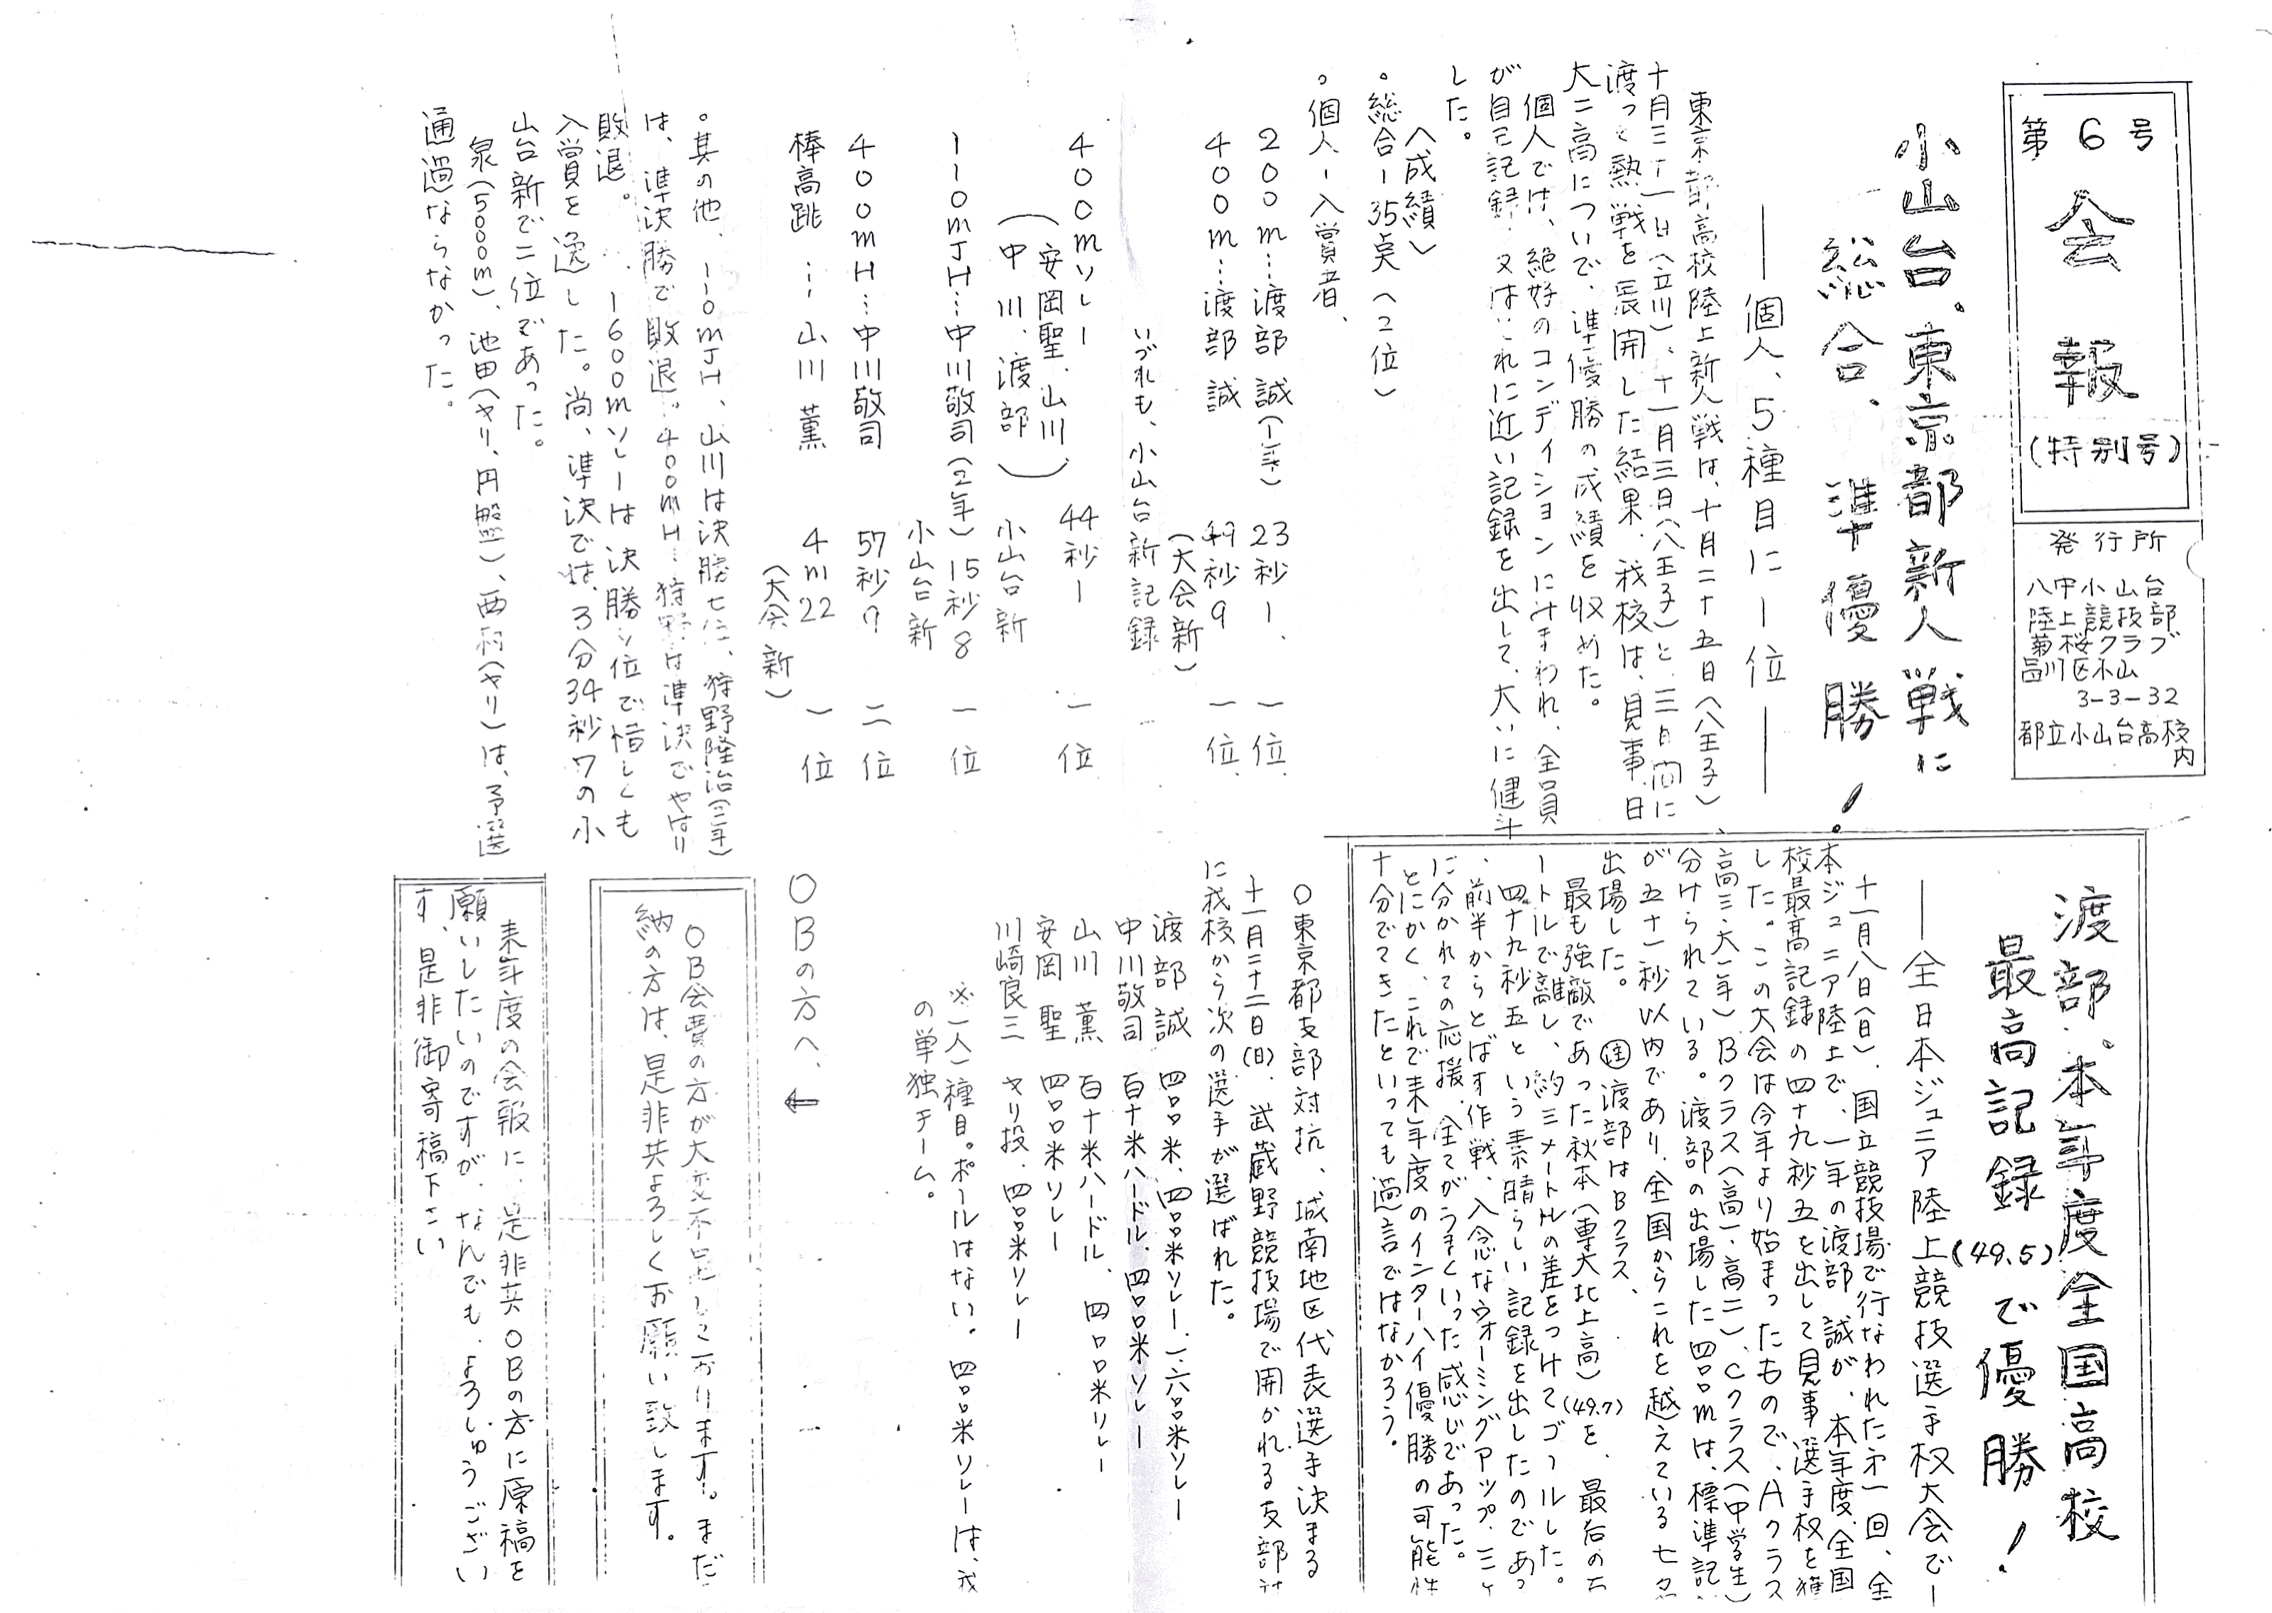 第6号
会報
(特別号)
発行所
八中小山台
陸上競技部
菊桜クラブ
品川区小山
3-3-32
都立小山台高校
内
小山台、東京都新人戦に
総合、準優勝!
―個人、5種目に1位―
東京都高校陸上新人戦は、十月二十五日(八王子)、
十月三十一日(立川)、十一月三日(八王子)と、三日間に
渡って熱戦を展開した結果、我校は、見事、日
大二高についで、準優勝の成績を収めた。
個人では、絶好のコンディションにめぐまわれ、全員
が自己記録、又はこれに近い記録を出して、大いに健斗
した。
〈成績〉
○総合ー35点(2位)
○個人ー入賞者、
200m…渡部 誠(1年) 23秒1、 一位、
400m…渡部 誠 49秒9 一位、
(大会新)
いづれも、小山台新記録
400mリレー 44秒1 一位
(安岡聖、山川、
中川、渡部) 小山台新
110mJH…中川敬司(2年) 15秒8 一位
小山台新
400mH…中川敬司 57秒9 二位
棒高跳 … 山川 薫 4m22 一位
(大会新)
○其の他、110mJH、山川は決勝七位、狩野隆治(二年)
は、準決勝で敗退。400mH…狩野は準決でやはり
敗退。 1600mリレーは決勝ソ位で惜しくも
入賞を逸した。尚、準決では、3分34秒7の小
山台新で二位であった。
泉(5000m)、池田(ヤリ、円盤)、西村(ヤリ)は、予選
通過ならなかった。
渡部、本年度全国高校
最高記録(49.5)で優勝!
―全日本ジュニア陸上競技選手权大会で―
十一月八日(日)、国立競技場で行なわれた才一回、全
本ジュニア陸上で、一年の渡部 誠が、本年度、全国
校最高記録の四十九秒五を出して見事選手权を獲
した。この大会は今年より始まったもので、Aクラス
高三・大一年)Bクラス(高一・高二)、Cクラス(中学生)
分けられている。渡部の出場した四〇〇mは、標準記
が五十一秒以内であり、全国からこれを越えている七名
出場した。 (注)渡部はBクラス、
最も強敵であった秋本(専大北上高)(49.7)を、最后の五
ートルで離し、約三メートルの差をつけてゴールした。
四十九秒五という素晴らしい記録を出したのであっ
、前半からとばす作戦、入念なウオーミングアップ、三ヶ
に分かれての応援、全てがうまくいった感じであった。
とにかく、これで来年度のインターハイ優勝の可能性
十分でてきたといっても過言ではなかろう。
○東京都支部対抗、城南地区代表選手決まる
十一月二十二日(日)、武蔵野競技場で開かれる支部対
に我校から次の選手が選ばれた。
渡部 誠 四〇〇米、四〇〇米リレー、一、六〇〇米リレー
中川敬司 百十米ハードル、四〇〇米リレー
山川 薫 百十米ハードル、四〇〇米リレー
安岡 聖 四〇〇米リレー
川崎良三 ヤリ投、四〇〇米リレー
※一人一種目。ポールはない。四〇〇米リレーは、我
の単独チーム。
OBの方へ、←
OB会費の方が大変不足しております。まだ
納の方は、是非共よろしくお願い致します。
来年度の会報に、是非共OBの方に原稿を
願いしたいのですが、なんでも、よろしゅうござい
す、是非御寄稿下さい